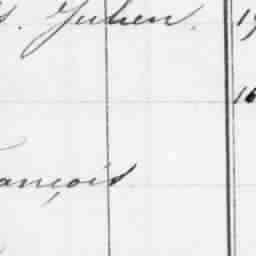 S. Julien. 19
16
ançois